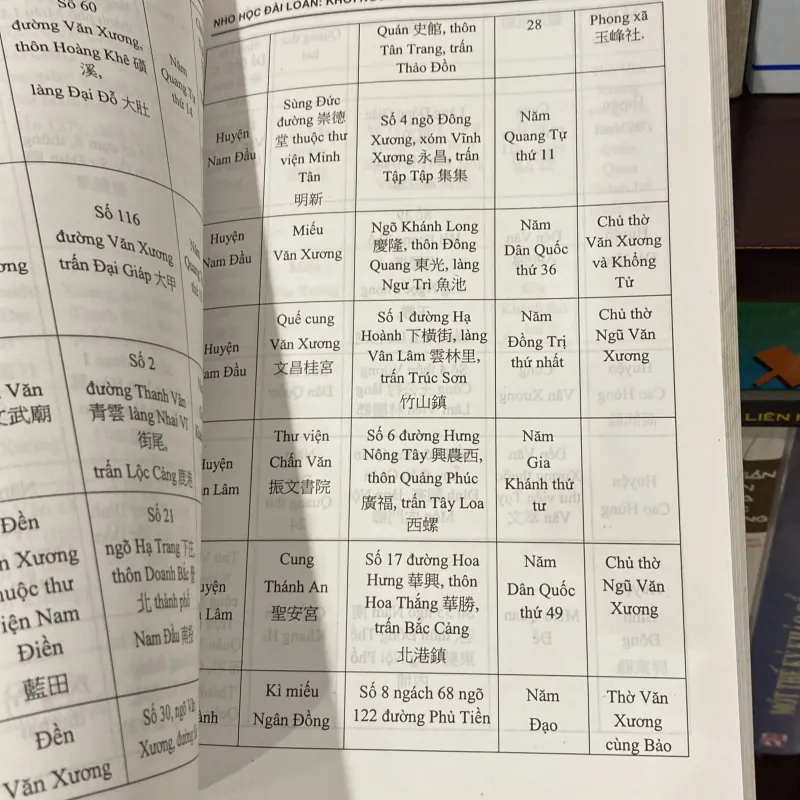 Số 60
đường Văn Xương,
thôn Hoàng Khê 磺
溪,
làng Đại Đỗ 大肚
Năm
Quang Tự
thứ 14
Số 116
đường Văn Xương
trấn Đại Giáp 大甲
Văn
文武廟
Số 2
đường Thanh Vân
青雲 làng Nhai Vĩ
街尾,
trấn Lộc Cảng 鹿港
Đền
Xương
thuộc thư
viện Nam
Điền
藍田
Số 21
ngõ Hạ Trang 下庄
thôn Doanh Bắc 營
北 thành phố
Nam Đầu 南投
Đền
Văn Xương
Số 30, ngõ
Xương, đường
NHO HỌC ĐÀI LOAN:
Quán 史館, thôn
Tân Trang, trấn
Thảo Đồn
28
Phong xã
玉峰社.
Huyện
Nam Đầu
Sùng Đức
đường 崇德
堂 thuộc thư
viện Minh
Tân
明新
Số 4 ngõ Đông
Xương, xóm Vĩnh
Xương 永昌, trấn
Tập Tập 集集
Năm
Quang Tự
thứ 11
Huyện
Nam Đầu
Miếu
Văn Xương
Ngõ Khánh Long
慶隆, thôn Đông
Quang 東光, làng
Ngư Trì 魚池
Năm
Dân Quốc
thứ 36
Chủ thờ
Văn Xương
và Khổng
Tử
Huyện
Nam Đầu
Quế cung
Văn Xương
文昌桂宮
Số 1 đường Hạ
Hoành 下橫街, làng
Vân Lâm 雲林里,
trấn Trúc Sơn
竹山鎮
Năm
Đồng Trị
thứ nhất
Chủ thờ
Ngũ Văn
Xương
Huyện
Lâm
Thư viện
Chấn Văn
振文書院
Số 6 đường Hưng
Nông Tây 興農西,
thôn Quảng Phúc
廣福, trấn Tây Loa
西螺
Năm
Gia
Khánh thứ
tư
Huyện
Lâm
Cung
Thánh An
聖安宮
Số 17 đường Hoa
Hưng 華興, thôn
Hoa Thắng 華勝,
trấn Bắc Cảng
北港鎮
Năm
Dân Quốc
thứ 49
Chủ thờ
Ngũ Văn
Xương
Kì miếu
Ngân Đồng
Số 8 ngách 68 ngõ
122 đường Phủ Tiền
Năm
Đạo
Thờ Văn
Xương
cùng Bảo
LIÊN
MỘT THẾ KỶ